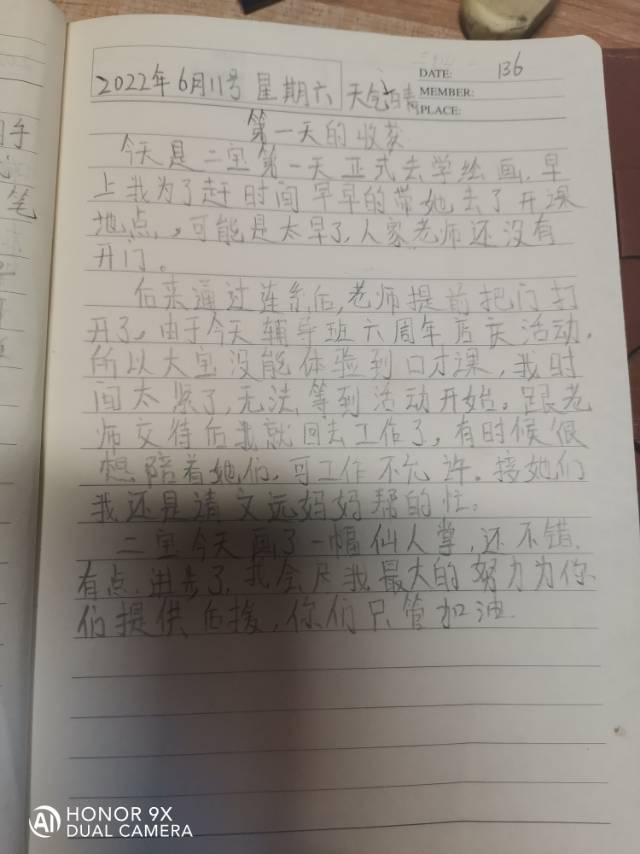 2022年6月11号 星期六 天气晴
DATE: 136
MEMBER:
PLACE:
第一天的收获
今天是二宝第一天正式去学绘画,早
上我为了赶时间早早的带她去了开课
地点,可能是太早了,人家老师还没有
开门。
后来通过连系后,老师提前把门打
开了。由于今天辅导班六周年店庆活动,
所以大宝没能体验到口才课,我时
间太紧了,无法等到活动开始。跟老
师交待后我就回去工作了,有时候很
想陪着她们,可工作不允许。接她们
我还是请文远妈妈帮的忙。
二宝今天画了一幅仙人掌,还不错,
有点进步了,我会尽我最大的努力为你
们提供后援,你们只管加油.
手
笔
HONOR 9X
DUAL CAMERA